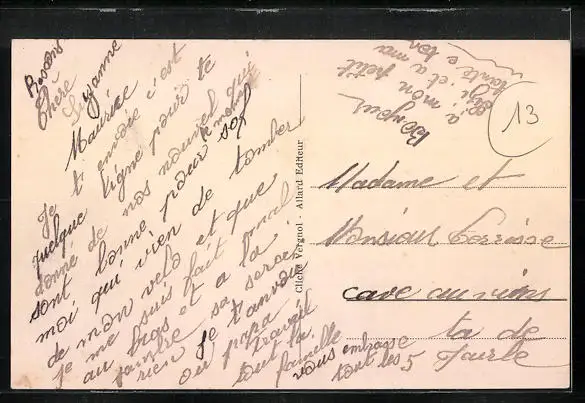 Rosans
Chère Suzanne
Maurice
Je t envoie c'est
quelque ligne pour te
donné de nos nouvel qui
sont bonne pour le moment sof
moi qui vien de tomber
de mon velo et que
je me suis fait mal
au bras et a la
jambre sa serai
rien Je t'anvoi
ou papa
travail
tout la
famille
vous embrasse
tout les 5
Bonjour
a mon petit
et a ma
tante e ton
13
Cliché Vergnol - Allard Editeur
Madame et
Monsieur
cave au vins
ta de